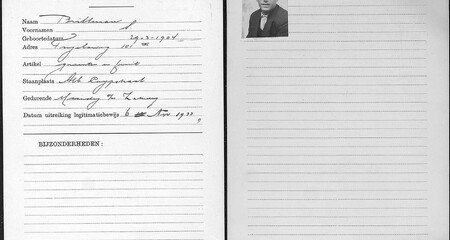 Naam Brilleman
Voornamen
Geboortedatum 29-3-1904
Adres 101
Artikel groenten en fruit
Staanplaats Alb Cuypstraat
Gedurende Maandag t/m Zaterdag
Datum uitreiking legitimatiebewijs 6 Nov 1933
BIJZONDERHEDEN: